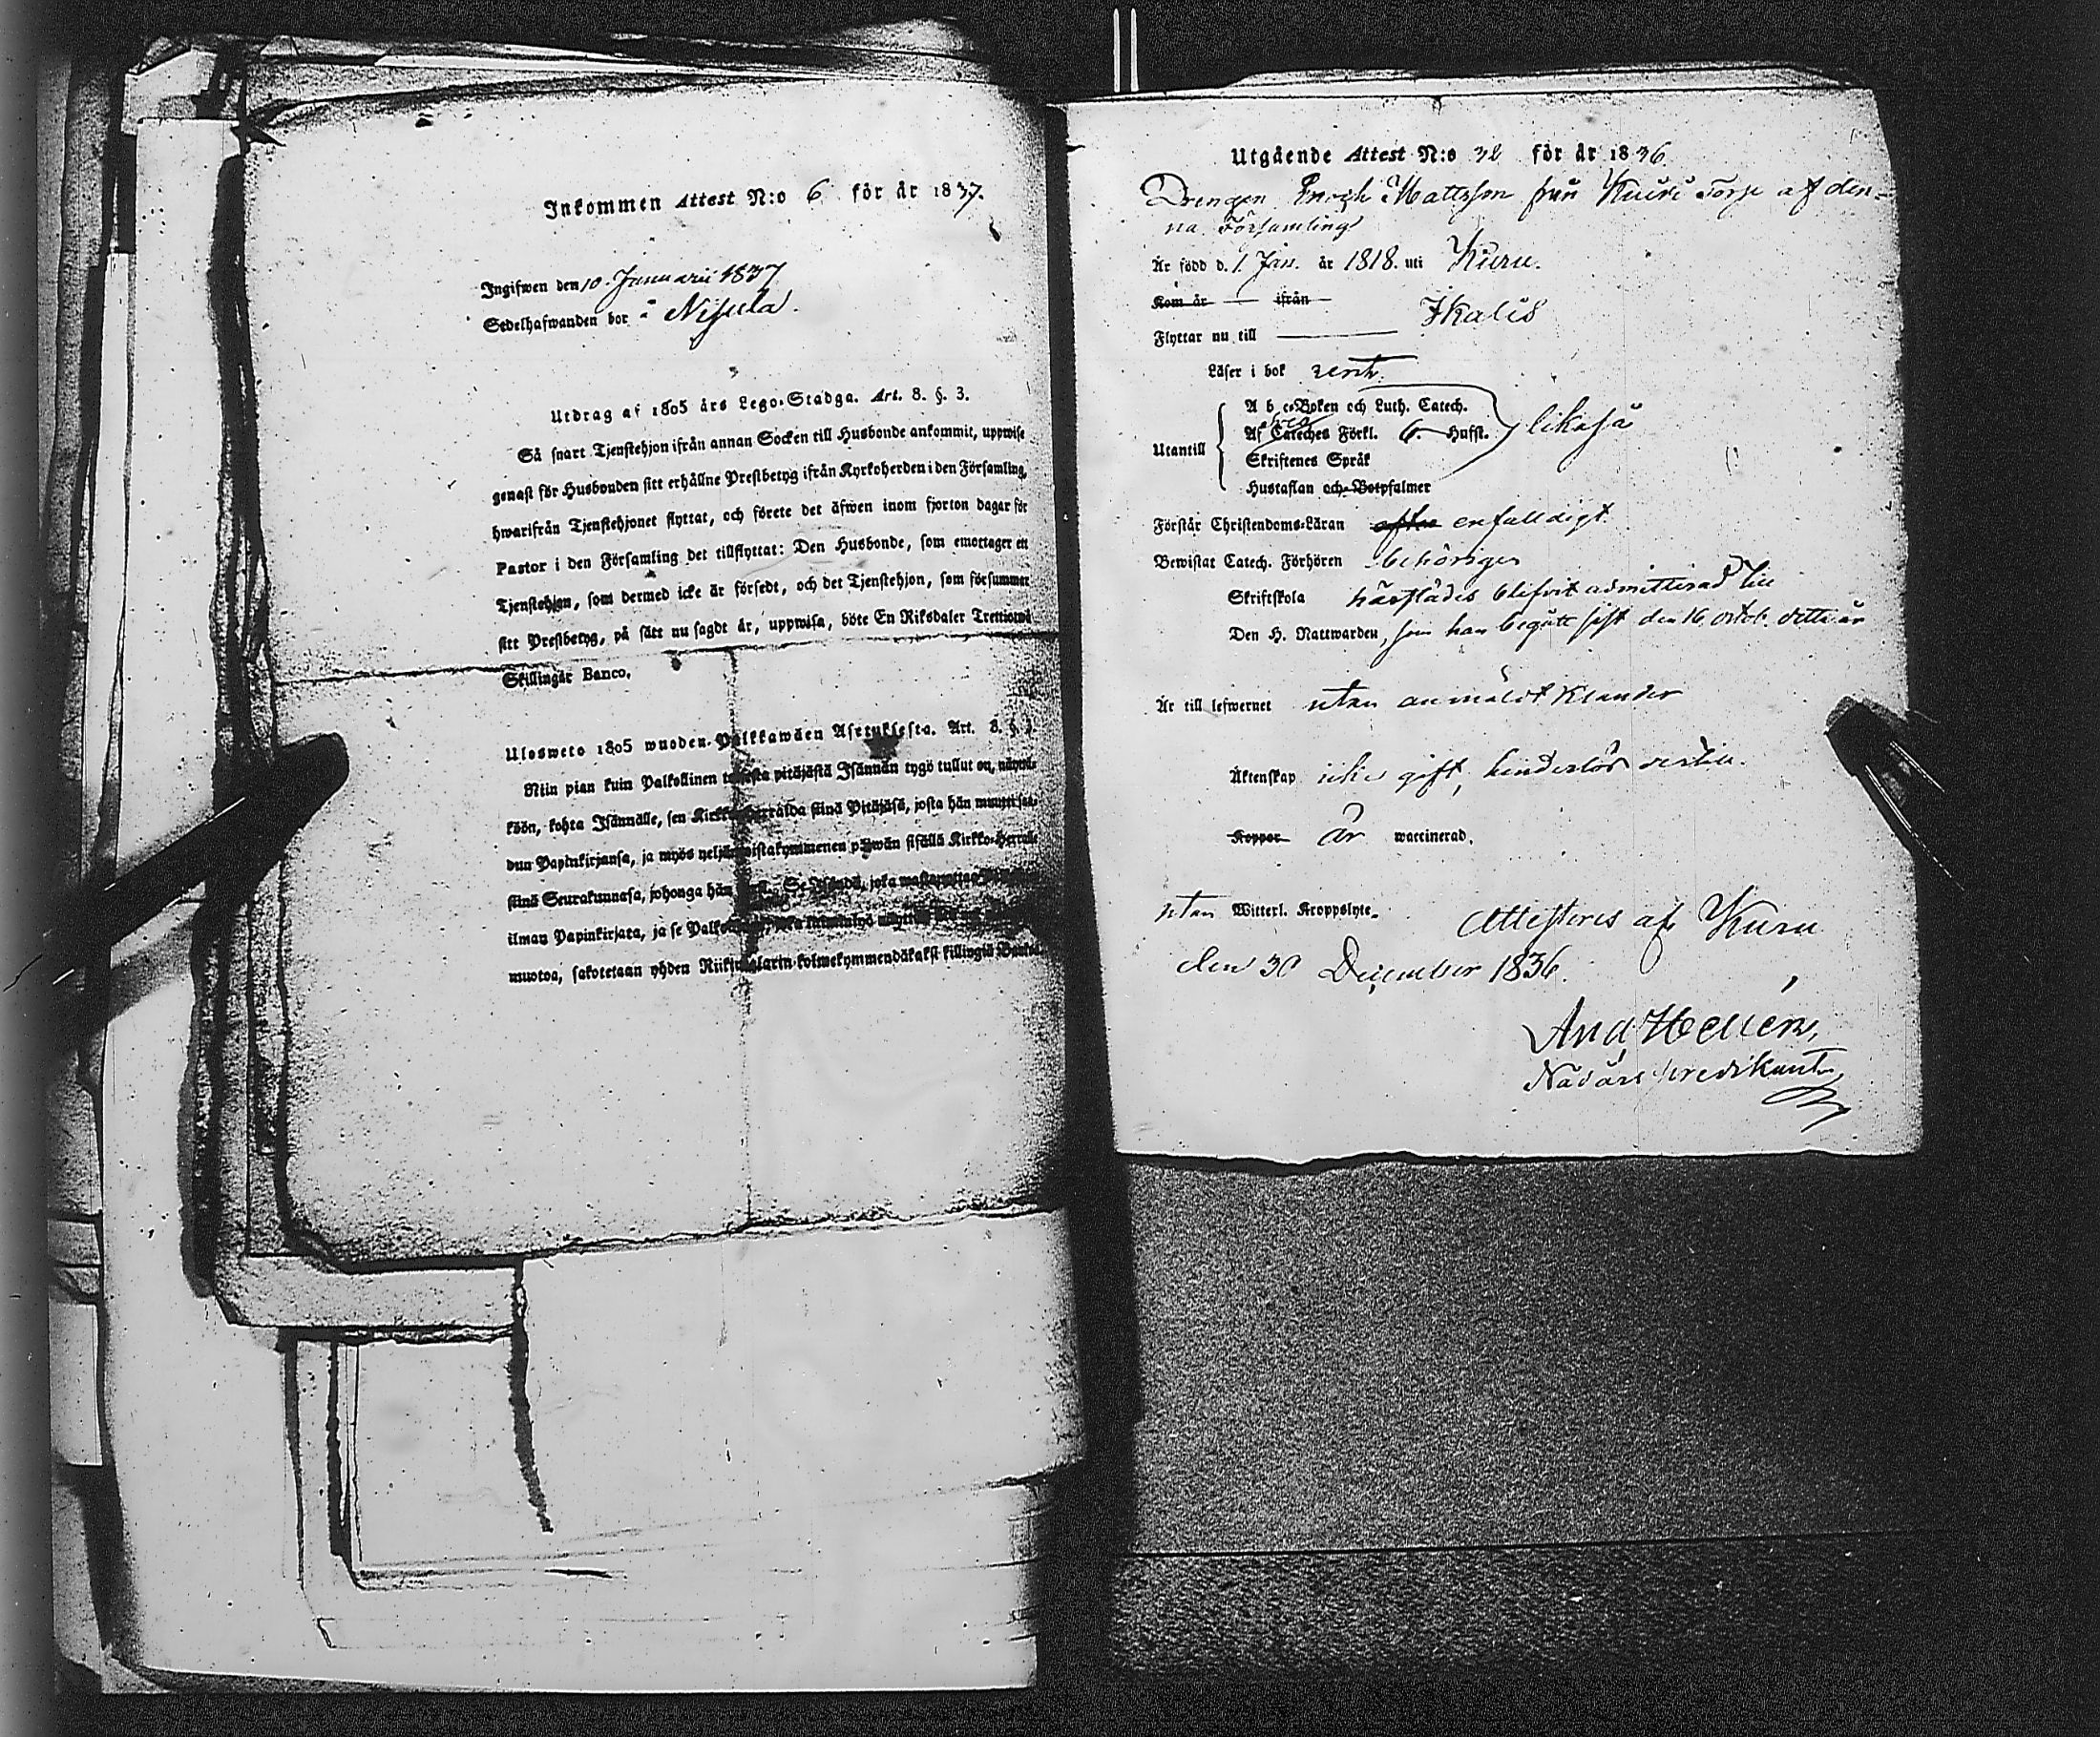 Inkommen Attest N:o 6 för år 1837.
Ingifwen den 10 Januarii 1837
Sedelhafwanden bor i Nisula.
Utdrag af 1805 års Lego-Stadga. Art. 8. §. 3.
Så snart Tjenstehjon ifrån annan Socken till Husbonde ankommit, uppwise
genast för Husbonden sitt erhållne Prestbetyg ifrån Kyrkoherden i den Församling,
hwarifrån Tjenstehjonet flyttat, och förete det äfwen inom fjorton dagar för
Pastor i den Församling det tillflyttat: Den Husbonde, som emottager ett
Tjenstehjon, som dermed icke är försedt, och det Tjenstehjon, som försummer
sitt Prestbetyg, på sätt nu sagdt är, uppwisa, böte En Riksdaler Trettiotwå
Skillingar Banco.
Ulosweto 1805 wuoden Palkkawäen Asetuksesta. Art. 8. §. 3.
Niin pian kuin Palkollinen toisesta pitäjästä Isännän tygö tullut on, näyttä-
köön, kohta Isännälle, sen Kirkko-Herralda siinä Pitäjäsä, josta hän muutti saa-
dun Papinkirjansa, ja myös neljäntoistakymmenen päiwän sisällä Kirkko-Herralle
siinä Seurakunnasa, johonga hän Se Isändä, joka wastanottaa
ilman Papinkirjata, ja se
muotoa, sakotetaan yhden Riikintalarin kolmekymmendäkaksi killingiä Bankos.
Utgående Attest N:o 32 för år 1836
Drengen Enoch Mattsson från Kuru Torp af den-
na Församling
Är född d. 1 Jan. år 1818. uti Kuru.
Kom år — ifrån —
Flyttar nu till — Ikalis
Läser i bok rent.
A b c-Boken och Luth. Catech.
Utantill Af Cateches Förkl. 6. Hufst. likaså
Skriftenes Språk
Hustaflan och Botpsalmer
Förstår Christendoms-Läran enfalldigt.
Bewistat Catech. Förhören behörigen
Skriftskola härstädes blifvit admitterad till
Den H. Nattwarden, som han begått sist den 16 octob. detta år
Är till lefwernet utan anmäldt klander
Äktenskap icke gift, hinderlös dertill.
Koppor är waccinerad.
utan Witterl. Kroppslyte. Attesteres af Kuru
den 30 December 1836.
And Hellén,
Nådårs predikant